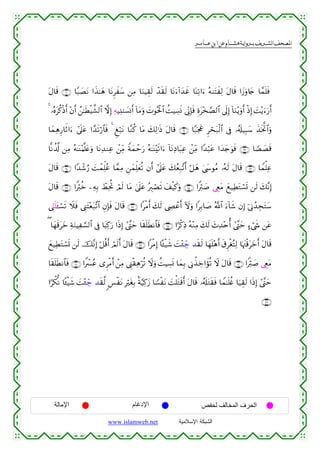 المصحف الشريف برواية هشام عن ابن عامر
فَلَمَّا جَاوَزَا قَالَ لِفَتَىٰهُ ءَاتِنَا غَدَآءَنَا لَقَدْ لَقِينَا مِن سَفَرِنَا هَٰذَا نَصَبًا ۝ قَالَ
أَرَءَيْتَ إِذْ أَوَيْنَآ إِلَى ٱلصَّخْرَةِ فَإِنِّى نَسِيتُ ٱلْحُوتَ وَمَآ أَنسَىٰنِيهِ إِلَّا ٱلشَّيْطَٰنُ أَنْ أَذْكُرَهُۥ ۚ
وَٱتَّخَذَ سَبِيلَهُۥ فِى ٱلْبَحْرِ عَجَبًا ۝ قَالَ ذَٰلِكَ مَا كُنَّا نَبْغِ ۚ فَٱرْتَدَّا عَلَىٰٓ ءَاثَارِهِمَا
قَصَصًا ۝ فَوَجَدَا عَبْدًا مِّنْ عِبَادِنَآ ءَاتَيْنَٰهُ رَحْمَةً مِّنْ عِندِنَا وَعَلَّمْنَٰهُ مِن لَّدُنَّا
عِلْمًا ۝ قَالَ لَهُۥ مُوسَىٰ هَلْ أَتَّبِعُكَ عَلَىٰٓ أَن تُعَلِّمَنِ مِمَّا عُلِّمْتَ رُشْدًا ۝ قَالَ
إِنَّكَ لَن تَسْتَطِيعَ مَعِى صَبْرًا ۝ وَكَيْفَ تَصْبِرُ عَلَىٰ مَا لَمْ تُحِطْ بِهِۦ خُبْرًا ۝ قَالَ
سَتَجِدُنِىٓ إِن شَآءَ ٱللَّهُ صَابِرًا وَلَآ أَعْصِى لَكَ أَمْرًا ۝ قَالَ فَإِنِ ٱتَّبَعْتَنِى فَلَا تَسْـَٔلَنِّى
عَن شَىْءٍ حَتَّىٰٓ أُحْدِثَ لَكَ مِنْهُ ذِكْرًا ۝ فَٱنطَلَقَا حَتَّىٰٓ إِذَا رَكِبَا فِى ٱلسَّفِينَةِ خَرَقَهَا ۖ
قَالَ أَخَرَقْتَهَا لِتُغْرِقَ أَهْلَهَا لَقَد جِّئْتَ شَيْـًٔا إِمْرًا ۝ قَالَ أَلَمْ أَقُلْ إِنَّكَ لَن تَسْتَطِيعَ
مَعِى صَبْرًا ۝ قَالَ لَا تُؤَاخِذْنِى بِمَا نَسِيتُ وَلَا تُرْهِقْنِى مِنْ أَمْرِى عُسْرًا ۝ فَٱنطَلَقَا
حَتَّىٰٓ إِذَا لَقِيَا غُلَٰمًا فَقَتَلَهُۥ قَالَ أَقَتَلْتَ نَفْسًا زَكِيَّةً بِغَيْرِ نَفْسٍ لَّقَد جِّئْتَ شَيْـًٔا نُّكْرًا
۝
الحرف المخالف لحفص الإدغام الإمالة
الشبكة الإسلامية www.islamweb.net